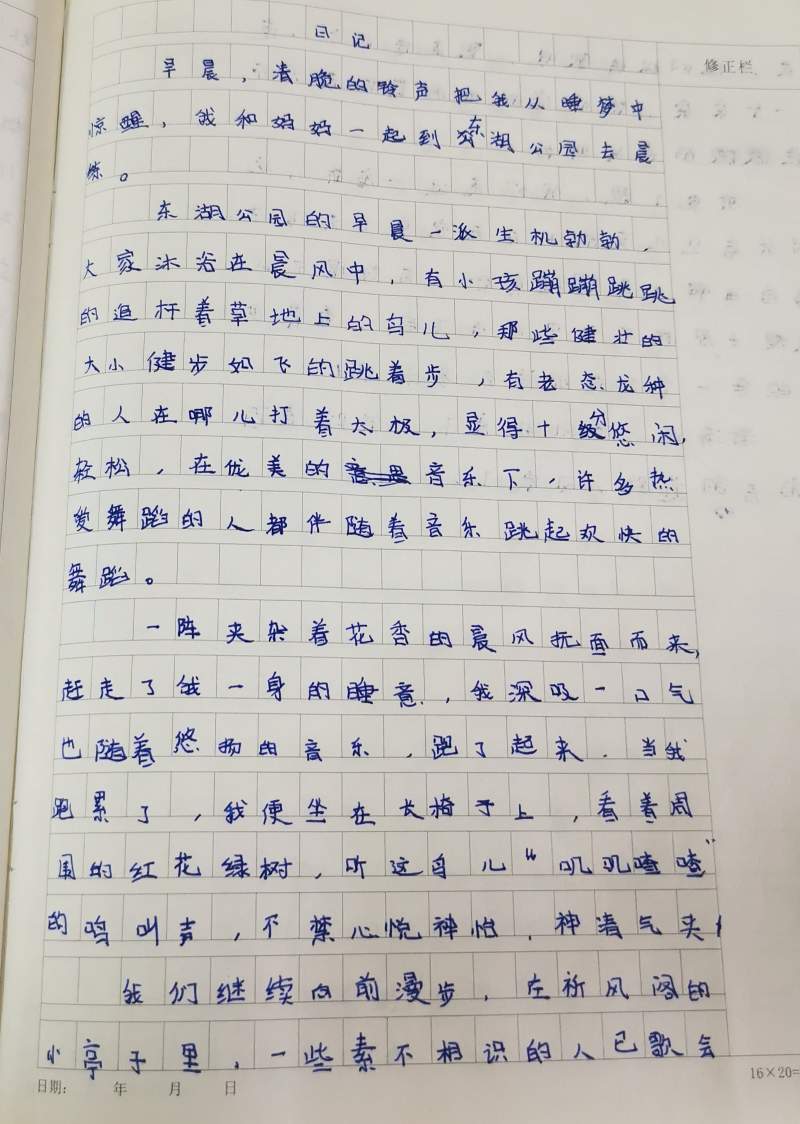 日记
修正栏
早晨，清脆的铃声把我从睡梦中
惊醒，我和妈妈一起到东湖公园去晨
练。
东湖公园的早晨一派生机勃勃，
大家沐浴在晨风中，有小孩蹦蹦跳跳
的追杆着草地上的鸟儿，那些健壮的
大小健步如飞的跳着步，有老态龙钟
的人在哪儿打着太极，显得十分悠闲，
轻松，在优美的音乐下，许多热
爱舞蹈的人都伴随着音乐跳起欢快的
舞蹈。
一阵夹杂着花香的晨风抚面而来，
赶走了我一身的睡意，我深吸一口气
也随着悠扬的音乐，跑了起来．当我
跑累了，我便坐在长椅子上，看着周
围的红花绿树，听这鸟儿“叽叽喳喳”
的鸣叫声，不禁心悦神怡，神清气夹
我们继续向前漫步，在祈风阁的
小亭子里，一些素不相识的人已歌会
日期： 年 月 日
16×20=